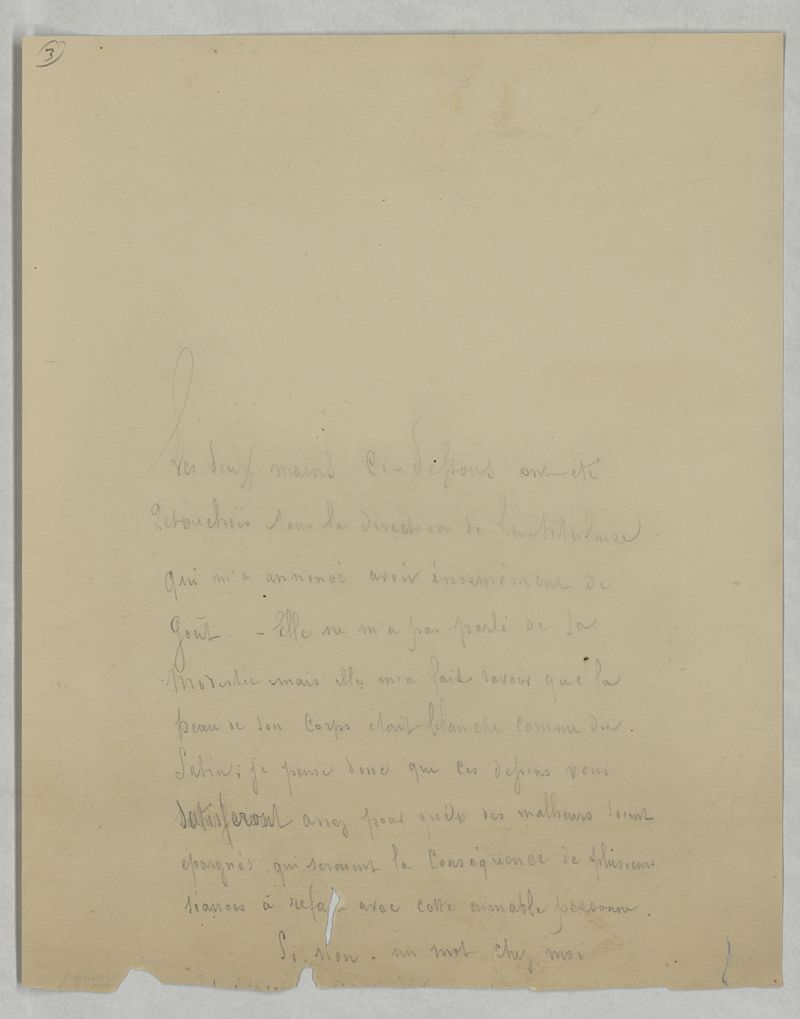 3
Les deux mains Ci-dessous ont été
Retouchées sous la direction de la titulaire
qui m'a annoncé avoir énormément de
Goût. - Elle ne m'a pas parlé de sa
Modestie mais elle m'a fait savoir que la
peau de son Corps était blanche comme du
Satin; je pense donc que ces dessins vous
Satisferont assez pour que des malheurs soient
épargnés qui seraient la Conséquence de plusieurs
séances à refaire avec cette aimable personne.
Si non. un mot chez moi